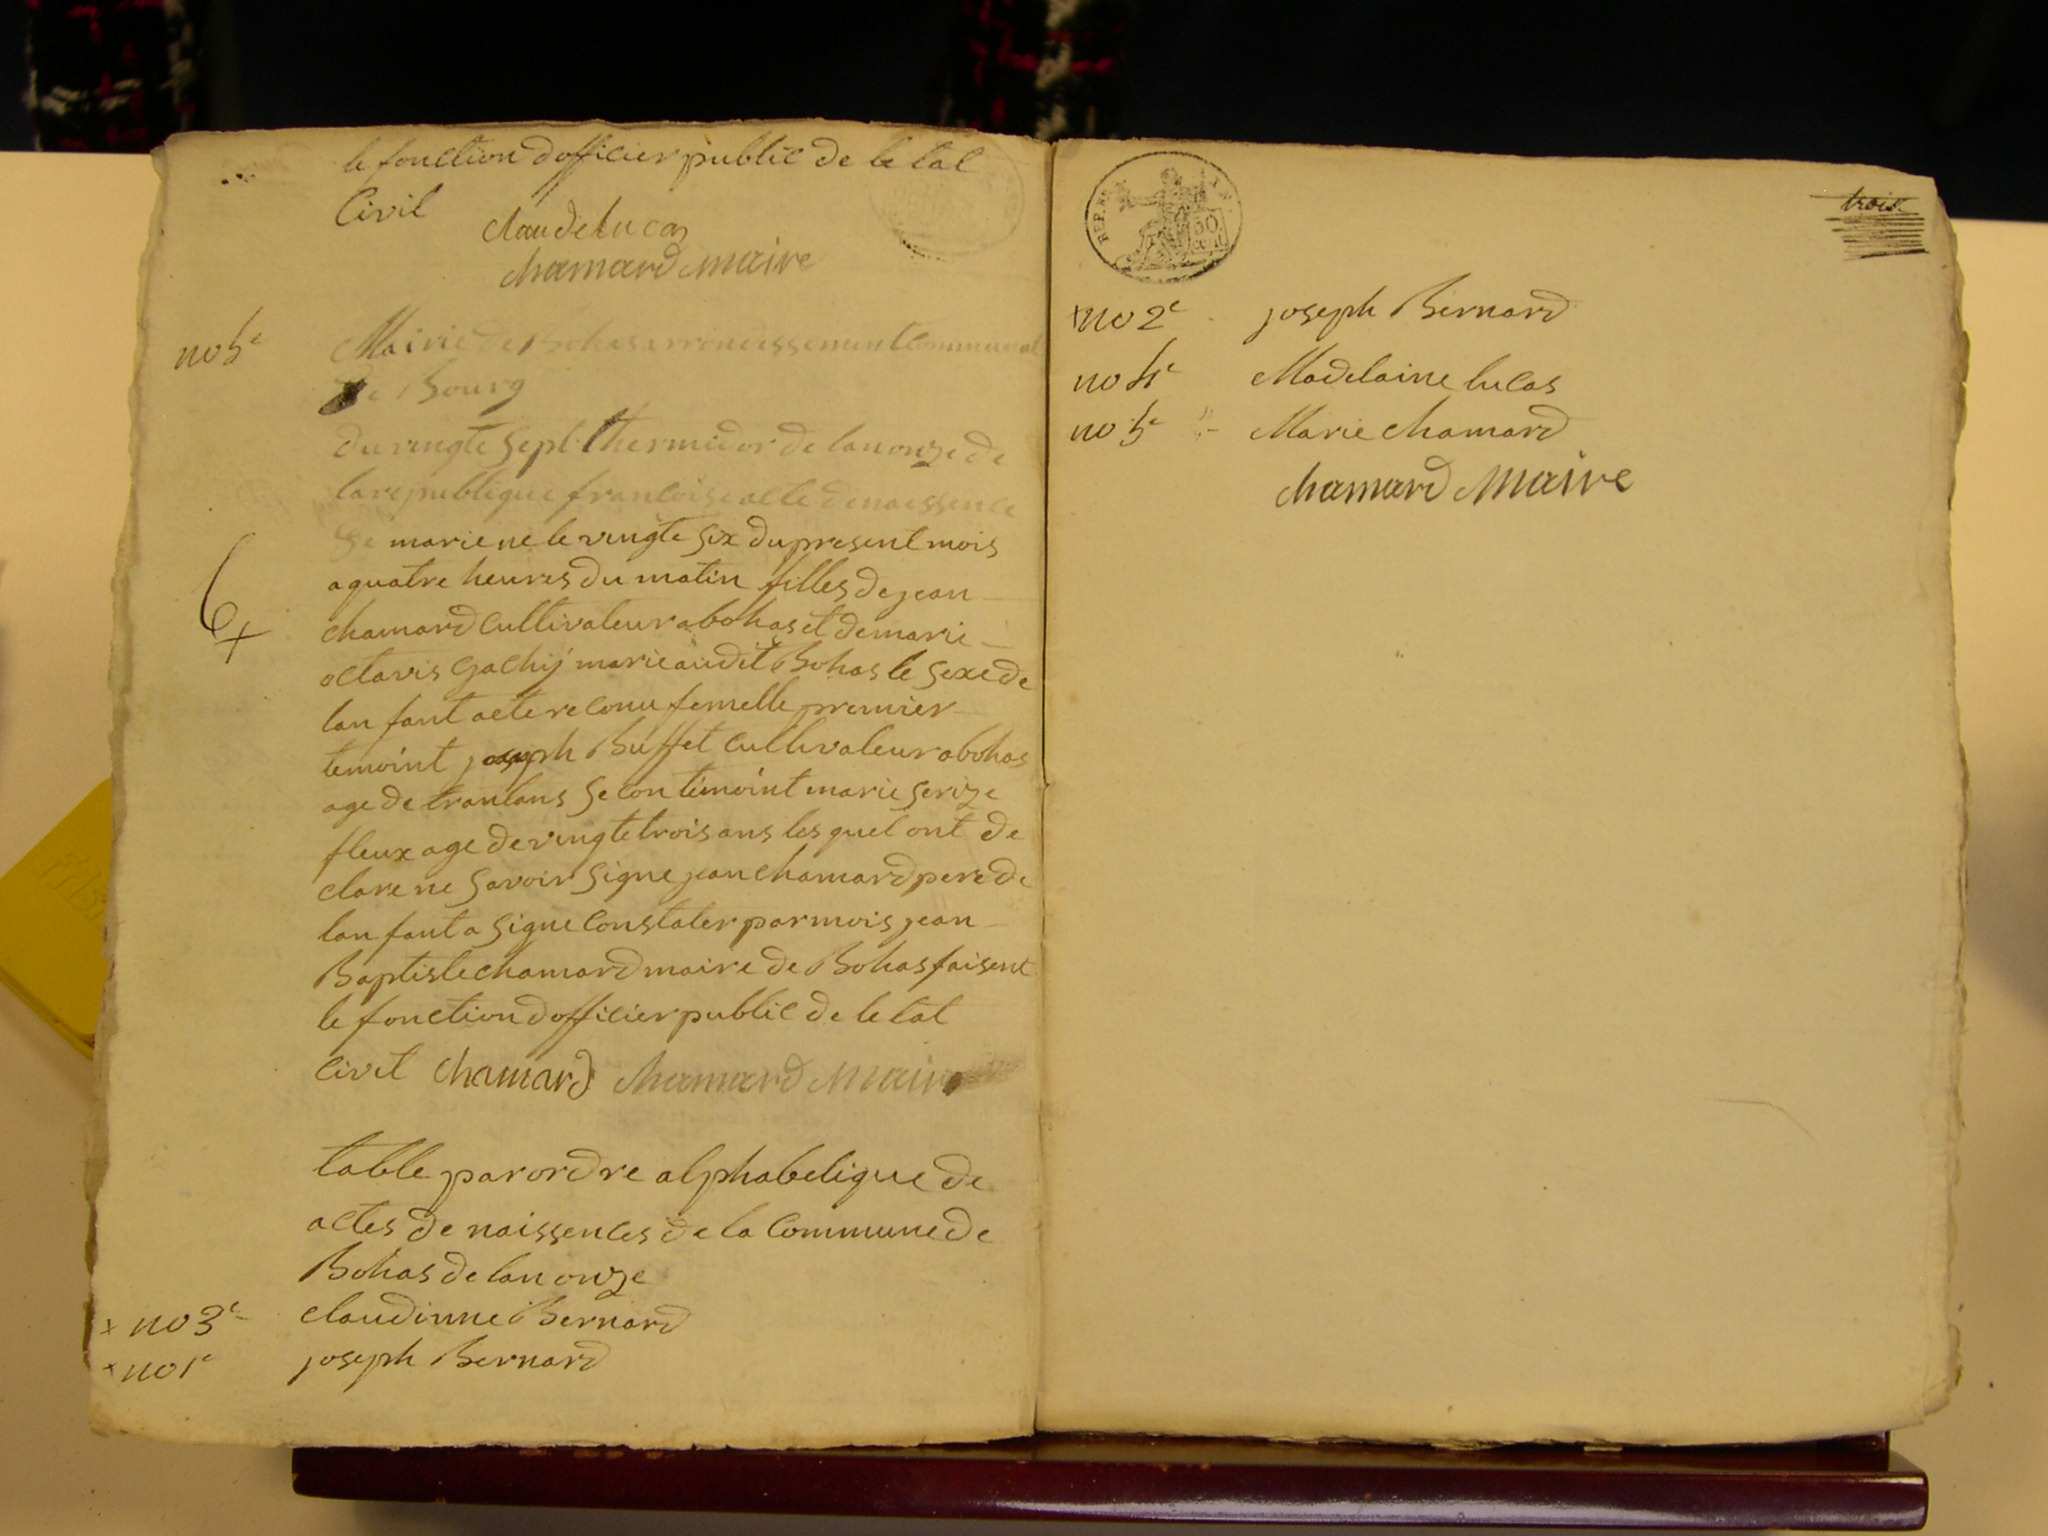 le fonction dofficier public de le tat
Civil
claude lucas
chamard maire
no 5e
Mairie de Bohas arrondissement Communal
de Bourg
du vingte sept thermidor de lan onze de
la republique francoise acte de naissence
de marie ne le vingte six du present mois
a quatre heures du matin filles de jean
chamard cultivateur a bohas et de marie
octavis gachij marie audit Bohas le sexe de
lan fant a ete reconu femelle premier
temoint joseph Buffet cultivateur a bohas
age de trantans secon temoint marie serize
fleux age de vingte trois ans les quel ont de
clare ne savoir signe jean chamard pere de
lan fant a signe Constater par mois jean
Baptiste chamard maire de Bohas faisent
le fonction dofficier public de le tat
civil chamard chamard maire
table par ordre alphabetique de
actes de naissences de la Commune de
Bohas de lan onze
x no 3e claudinne Bernard
x no 1e joseph Bernard
REP.
50
cent
trois
x no 2e joseph Bernard
no 4e Madelaine lucas
no 5e Marie chamard
chamard Maire